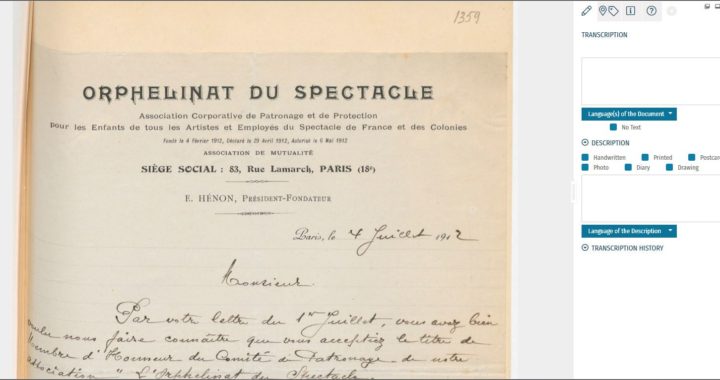 1359
ORPHELINAT DU SPECTACLE
Association Corporative de Patronage et de Protection
pour les Enfants de tous les Artistes et Employés du Spectacle de France et des Colonies
Fondé le 4 Février 1912, Déclaré le 29 Avril 1912, Autorisé le 6 Mai 1912
ASSOCIATION DE MUTUALITÉ
SIÈGE SOCIAL : 83, Rue Lamarck, PARIS (18e)
E. HÉNON, PRÉSIDENT-FONDATEUR
Paris, le 4 Juillet 1912
Monsieur
Par votre lettre du 1er Juillet, vous avez bien
voulu nous faire connaître que vous acceptiez le titre de
Membre d'Honneur du Comité de Patronage de notre
association "L'Orphelinat du Spectacle
TRANSCRIPTION
Language(s) of the Document
No Text
DESCRIPTION
Handwritten Printed Postcard
Photo Diary Drawing
Language of the Description
TRANSCRIPTION HISTORY